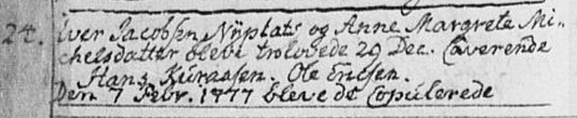 24. Iver Jacobsen Nÿplats og Anne Margrete Mi-
chelsdatter bleve trolovede 29 Dec. Caverende
Hans Knudsen. Ole Ericsen.
Den 7 Febr. 1777 bleve de Copulerede